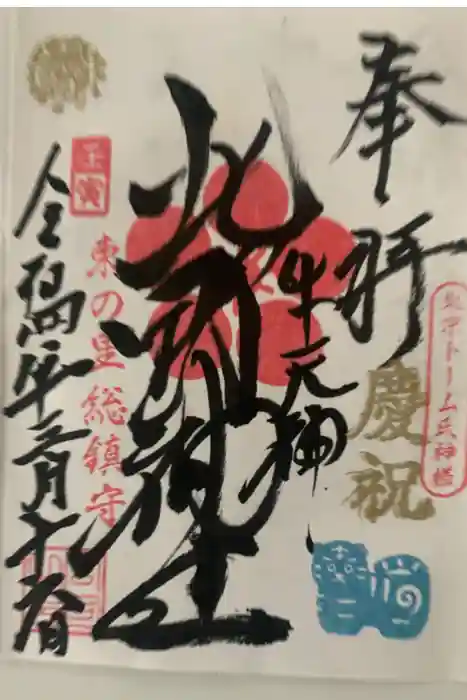 奉拝
慶祝
東京ドーム氏神様
牛天神
北野神社
東の 総鎮守
壬寅
令和四年三月十六日